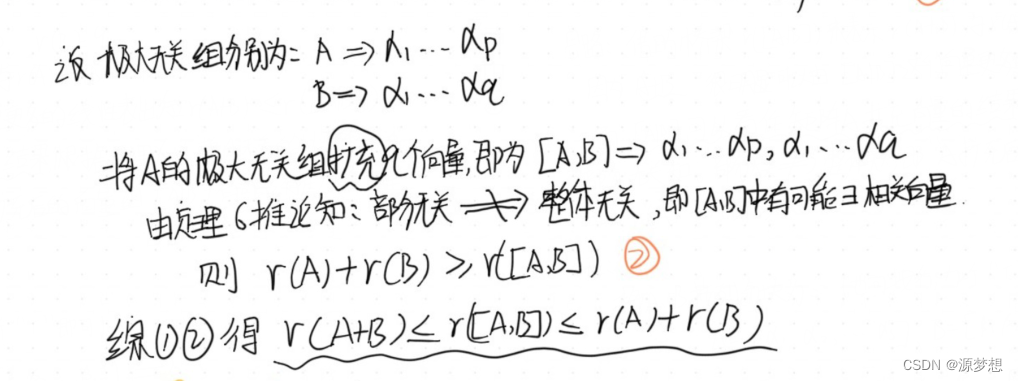 ①
设极大无关组分别为: A ⇒ α₁…αp
B ⇒ α₁…αq
将A的极大无关组扩充q个向量,即为 [A,B] ⇒ α₁…αp, α₁…αq
由定理6推论知: 部分无关 ⇏ 整体无关, 即[A,B]中有可能∃相关向量.
则 r(A)+r(B) ≥ r([A,B]) ②
综①②得 r(A+B) ≤ r([A,B]) ≤ r(A)+r(B)
CSDN @源梦想